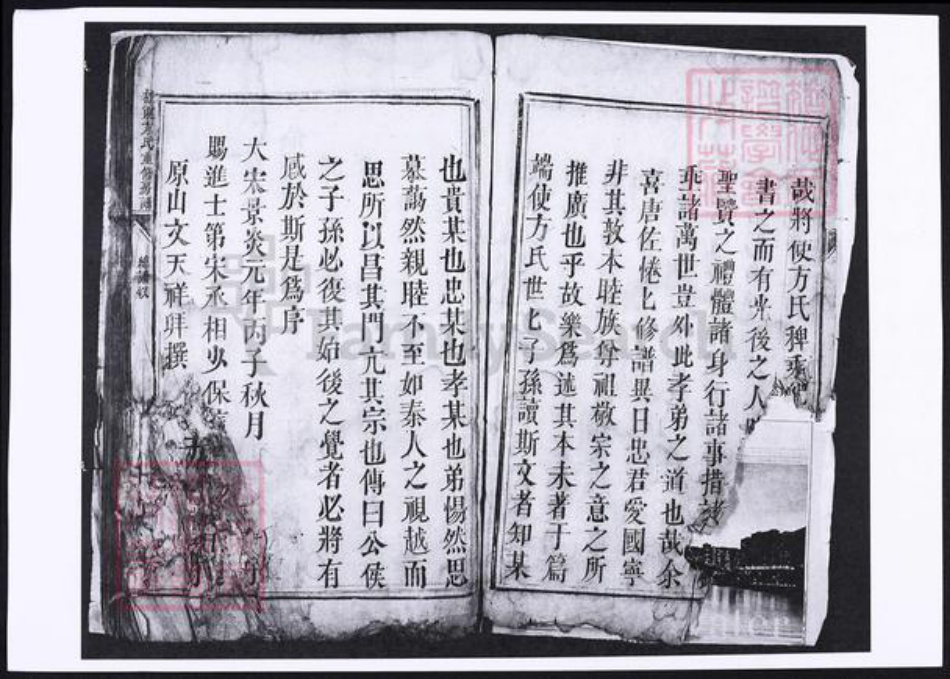 哉將使方氏稗乘
書之而有光後之人
聖賢之禮體諸身行諸事措諸
垂諸萬世豈外此孝弟之道也哉余
喜唐佐惓匕修譜異日忠君愛國寧
非其敦本睦族尊祖敬宗之意之所
推廣也乎故樂爲述其本末著于篇
端使方氏世匕子孫讀斯文者知某
也貴某也忠某也孝某也弟惕然思
慕藹然親睦不至如秦人之視越而
思所以昌其門亢其宗也傳曰公侯
之子孫必復其始後之覺者必將有
感於斯是爲序
大宋景炎元年丙子秋月
賜進士第宋丞相少保
原山文天祥拜撰
FamilySearch